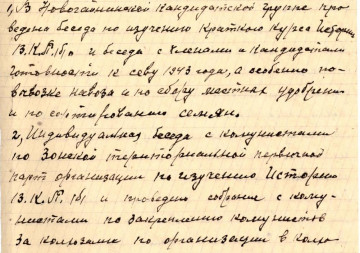 1, В Новогатнинской кандидатской группе про-
ведена беседа по изучению краткого курса Истории
В.К.П.(б) и беседа с членами и кандидатами
готовности к севу 1943 года, а особенно по
вывозке навоза и по сбору местных удобрени
и по сортированию семян.
2, Индивидуальная беседа с комунистами
по Зонской территориальной первичной
парт организации по изучению Историю
В.К.П.(б) и проведено собрание с кому-
нистами по закреплению комунистов
за колхозами по организации в колхо